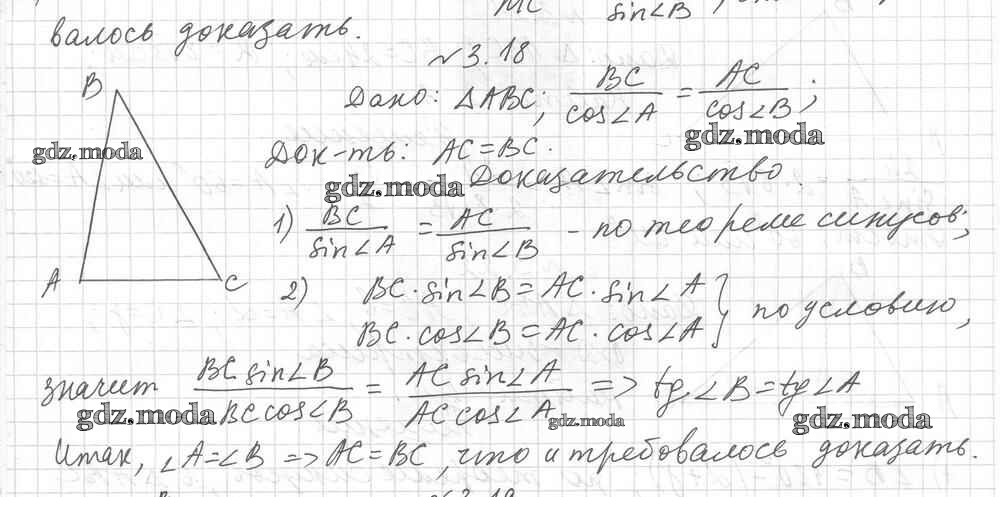 MC sin∠B
валось доказать.
№3.18
B
Дано: △ABC; BC/cos∠A = AC/cos∠B;
gdz.moda
gdz.moda
Док-ть: AC=BC.
gdz.moda Доказательство.
1) BC/sin∠A = AC/sin∠B - по теореме синусов;
A C
2) BC·sin∠B = AC·sin∠A
BC·cos∠B = AC·cos∠A } по условию,
значит BC sin∠B/BC cos∠B = AC sin∠A/AC cos∠A => tg∠B = tg∠A
gdz.moda gdz.moda gdz.moda
Итак, ∠A=∠B => AC=BC, что и требовалось доказать.
№3.19